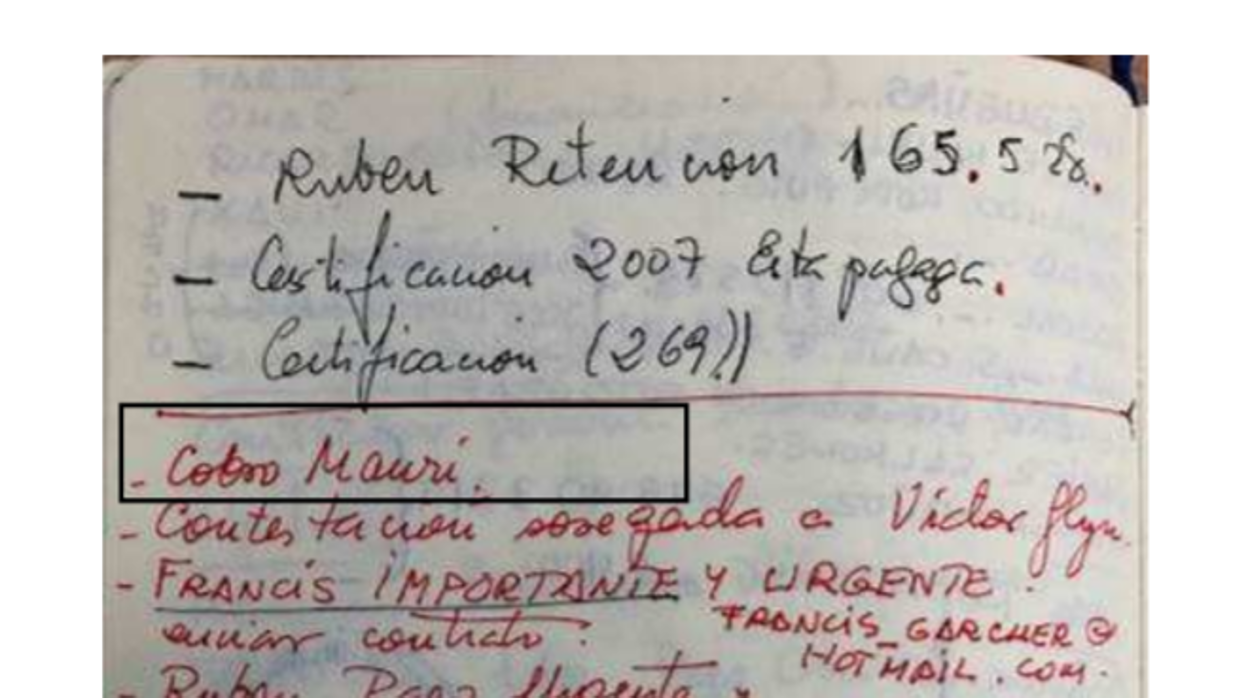 - Ruben Retencion 165.5
- Certificacion 2007 Esta pagaga.
- Certificacion (269))
- Cobro Mauri.
- Contestacion sosegada a Victor flyn.
- FRANCIS IMPORTANTE Y URGENTE.
enviar contrato: FRANCIS_GARCHER@
HOTMAIL.COM.
- Ruben Paez Urgente y